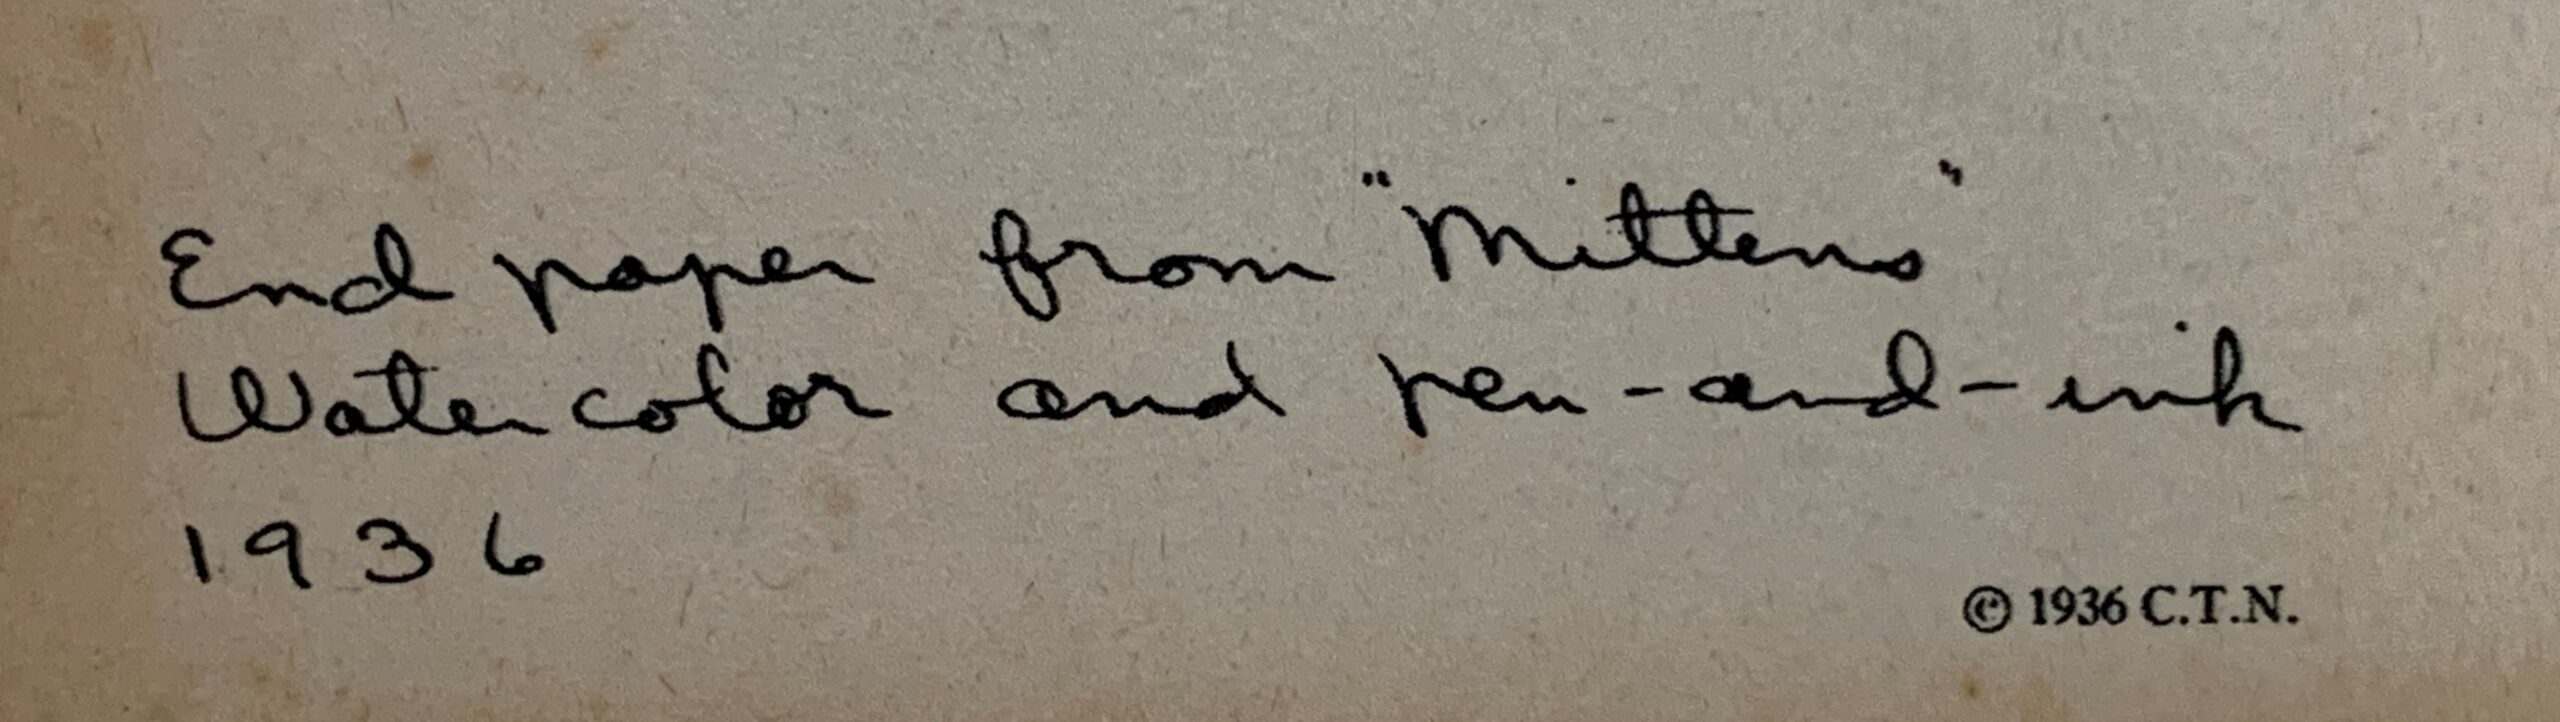 End paper from "Mittens"
Watercolor and pen-and-ink
1936
© 1936 C.T.N.